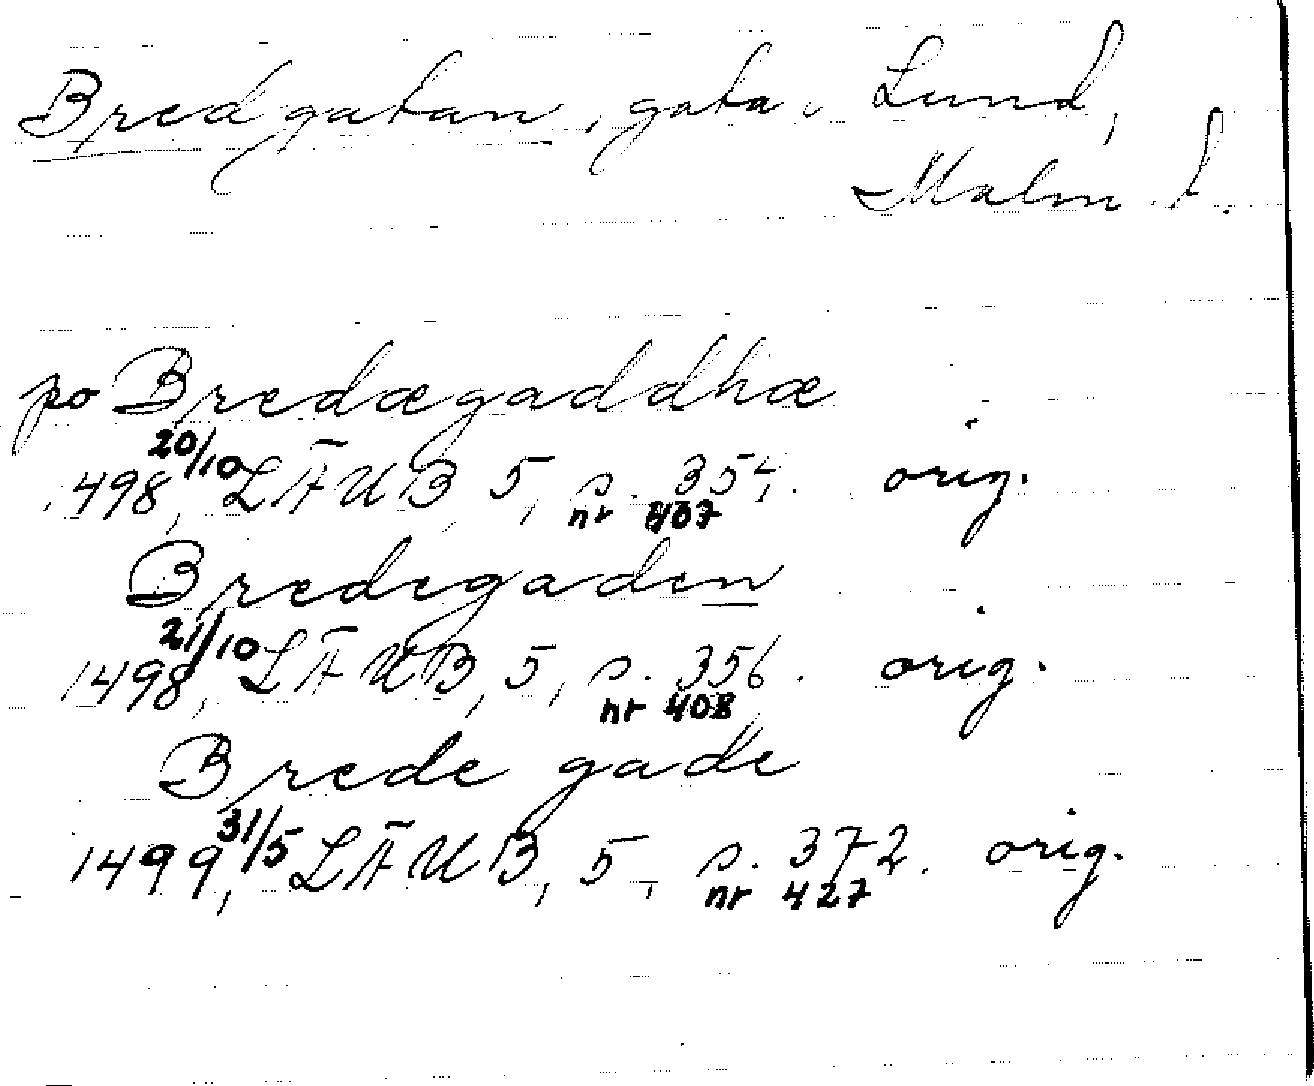 Bredgatan, gata i Lund,
Malm. l.
po Bredægaddhæ
1498, 20/10 LÄUB, 5, s. 354. orig.
nr 407
Bredegaden
1498, 21/10 LÄUB, 5, s. 356. orig.
nr 408
Brede gade
1499, 31/5 LÄUB, 5, s. 372. orig.
nr 427